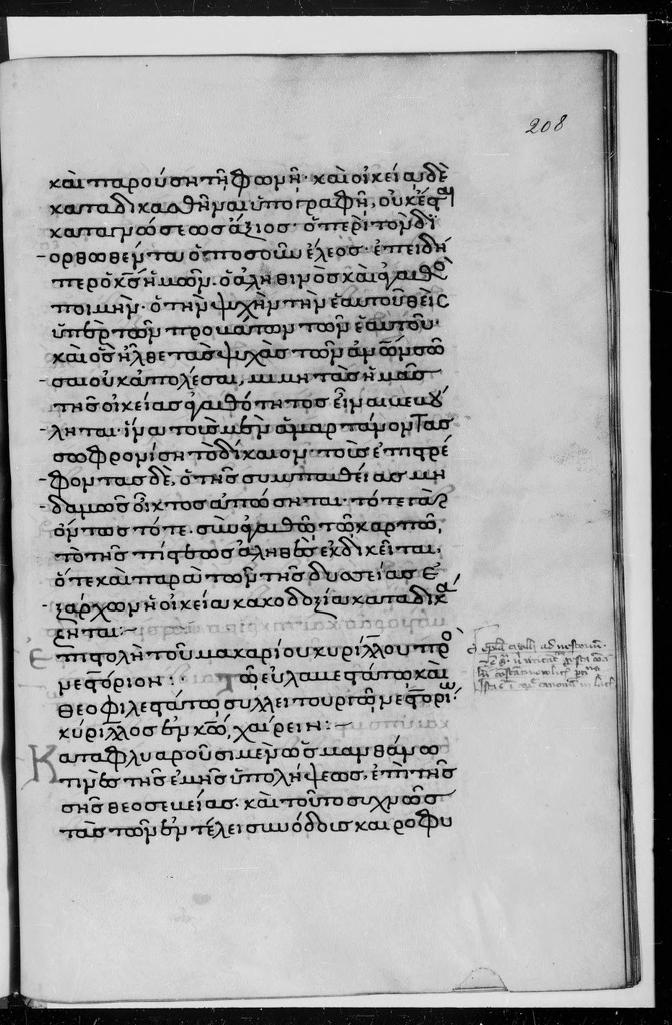 208
καὶ παρούση τῇ φωνῇ· καὶ οἰκεία δὲ
καταδικασθῆναι ὑπογραφῇ, οὐκ ἔστι
καταγνώσεως ἄξιος· ὁ περὶ τὸν δι
ορθωθέντα ὁποσοῦν ἔλεος· ἐπειδὴ
περ ὁ κ̅ς̅ ἡμῶν· ὁ ἀληθινὸς καὶ ἀγαθὸ
ποιμὴν· ὁ τὴν ψυχὴν τὴν ἑαυτοῦ θεὶς
ὑπὲρ τῶν προβάτων τῶν ἑαυτοῦ·
καὶ ὃς ἦλθε τὰς ψυχὰς τῶν ἀν̅ω̅ν σῶ
σαι οὐκ ἀπολέσαι, μιμητὰς ἡμᾶς
τῆς οἰκείας ἀγαθότητος εἶναι βεβού
ληται· ἵνα τοὺς μὲν ἁμαρτάνοντας
σωφρονίση τὸ δίκαιον· τοὺς ἐπιστρέ
φοντας δὲ, ὁ τῆς συμπαθείας μη
δαμῶς οἶκτος ἀπώσηται· τότε γὰρ
ὄντως τότε· σὺν ἀγαθῷ τῷ καρπῷ,
τὸ τῆς πίστεως ἀληθὲς ἐκδικεῖται,
ὅτε καὶ παρὰ τῶν τῆς δυσσεβείας ἐ
ξάρχων ἡ οἰκεία κακοδοξία καταδικά
ζηται:
Ἐπιστολὴ τοῦ μακαρίου κυρίλλου πρὸ
νεστόριον: Τῶ εὐλαβεστάτω καὶ
θεοφιλεστάτω συλλειτουργῷ νεστορίω·
κύριλλος ἐν κ̅ω̅, χαίρειν:
Καταφλυαροῦσι μὲν ὡς μανθάνω
τινὲς τῆς ἐμῆς ὑπολήψεως, ἐπὶ τῆς
σῆς θεοσεβείας· καὶ τοῦτο συχνῶς
τὰς τῶν ἐν τέλει συνόδους καιροφυ